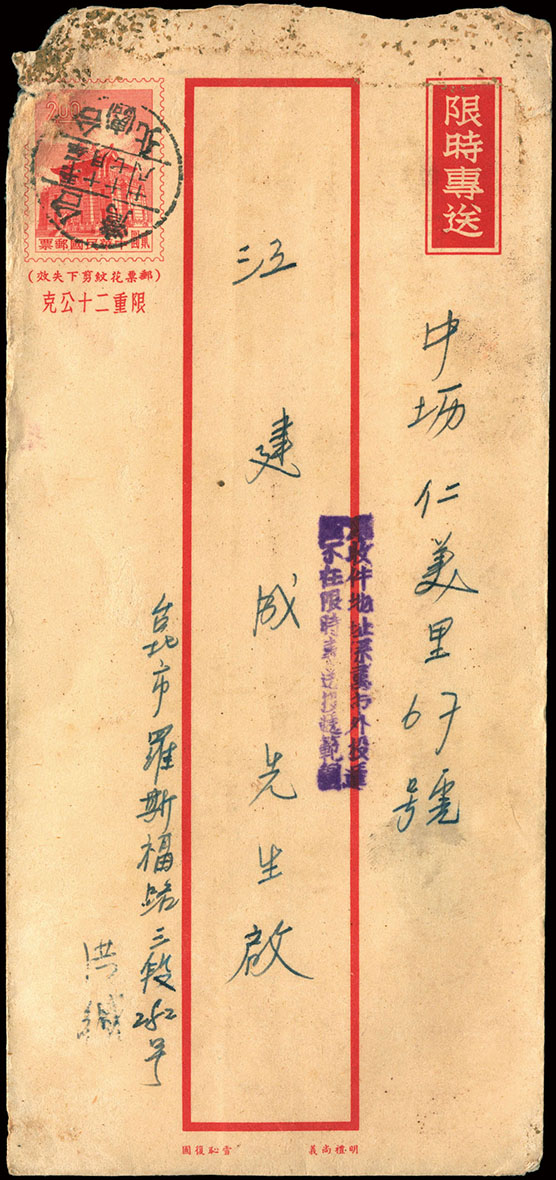 限時專送
中坜仁美里67號
江建成先生啟
收件地址
不在限時專送投遞範圍
台北市羅斯福路三段282号
洪緘
2.00
中華民國郵票
(郵票花紋剪下失效)
限重二十公克
台北
明禮尚義
雪恥復國